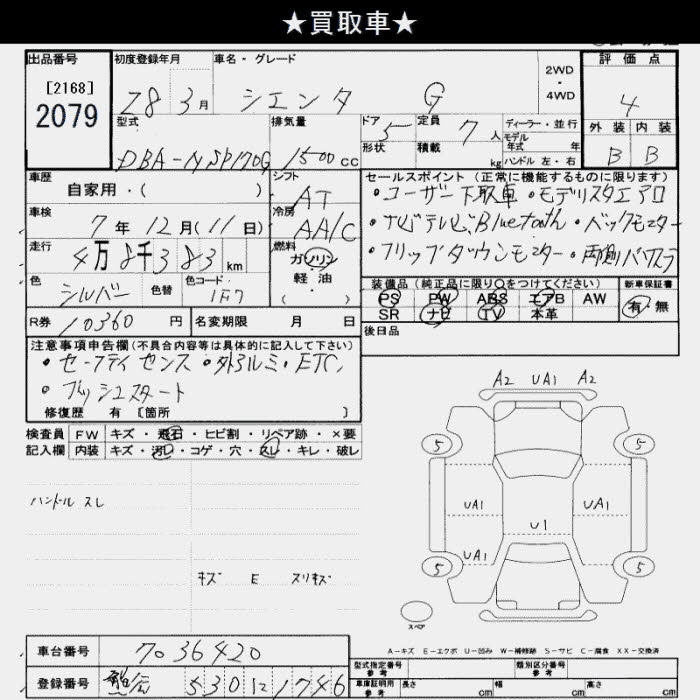 ★買取車★
出品番号 初度登録年月 車名・グレード 2WD・4WD 評価点
[2168]
2079
28 3月 シエンタ G 4
型式 排気量 ドア 5 定員 7人 ディーラー・並行 外装 内装
モデル年式 年
DBA-NSP170G 1500cc 形状 積載 kg ハンドル 左・右 B B
車歴 自家用・( ) シフト AT セールスポイント(正常に機能するものに限ります)
・ユーザー下取車・モデリスタエアロ
車検 7年12月(11日) 冷房 AA/C ・ナビテレビ、Bluetooth・バックモニター
走行 4万8千383km 燃料 ガソリン・軽油・( ) ・フリップダウンモニター・両側パワスラ
色 シルバー 色替 色コード 1F7 装備品(純正品に限り○をつけてください) 新車保証書
PS PW ABS エアB AW 有・無
SR ナビ TV 本革
R券 10360円 名変期限 月 日 後日品
注意事項申告欄(不具合内容等は具体的に記入して下さい)
・セーフティセンス・外アルミ・ETC
・プッシュスタート
修復歴 有〔箇所 〕
検査員記入欄 FW キズ・飛石・ヒビ割・リペア跡・×要
内装 キズ・汚レ・コゲ・穴・スレ・キレ・破レ
ハンドル スレ
キズ E スリキズ
A2 UA1 A2
5 5
UA1 UA1
U1
UA1
5 5
スペア
A-キズ E-エクボ U-凹み W-補修跡 S-サビ C-腐食 XX-交換済
車台番号 7036420
型式指定番号 参考 類別区分番号 参考
登録番号 530 1746
車庫証明用 参考 長さ cm 幅 cm 高さ cm